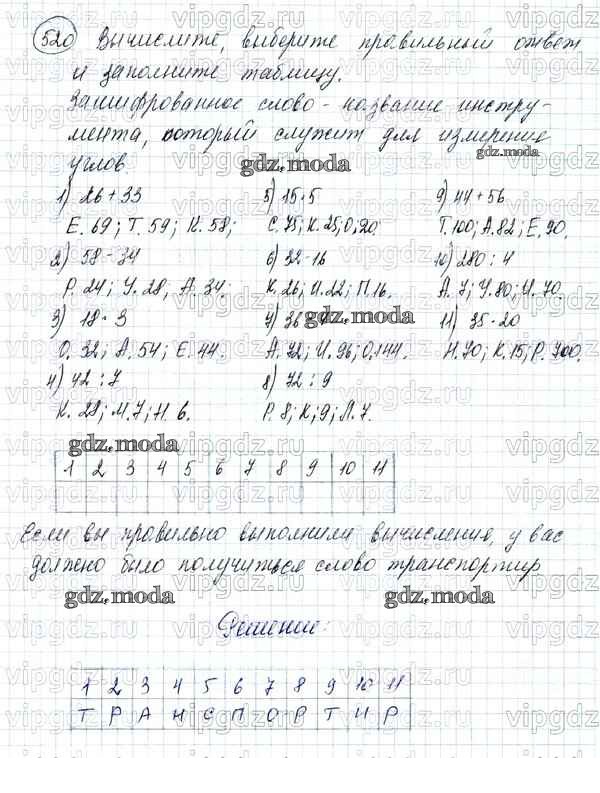 520 Вычислите, выберите правильный ответ
и заполните таблицу.
Зашифрованное слово - название инстру-
мента, который служит для измерения
углов.
1) 26 + 33
Е. 69; Т. 59; К. 58;
2) 58 - 34
Р. 24; У. 28; А. 34.
3) 18 · 3
О. 32; А. 54; Е. 44.
4) 42 : 7
К. 28; М. 7; Н. 6.
5) 15 · 5
С. 75; К. 25; О. 20
6) 32 - 16
К. 26; И. 22; П. 16.
7) 36
А. 72; И. 96; О. 144.
8) 72 : 9
Р. 8; К; 9; Л. 7.
9) 44 + 56
Т. 100; А. 82; Е. 90.
10) 280 : 4
А. 7; У. 80; И. 70.
11) 35 · 20
Н. 70; К. 15; Р. 700.
1 2 3 4 5 6 7 8 9 10 11
Если вы правильно выполнили вычисления, у вас
должно было получиться слово транспортир
Решение:
1 2 3 4 5 6 7 8 9 10 11
Т Р А Н С П О Р Т И Р
gdz.moda
gdz.moda
gdz.moda
gdz.moda
gdz.moda
gdz.moda
vipgdz.ru